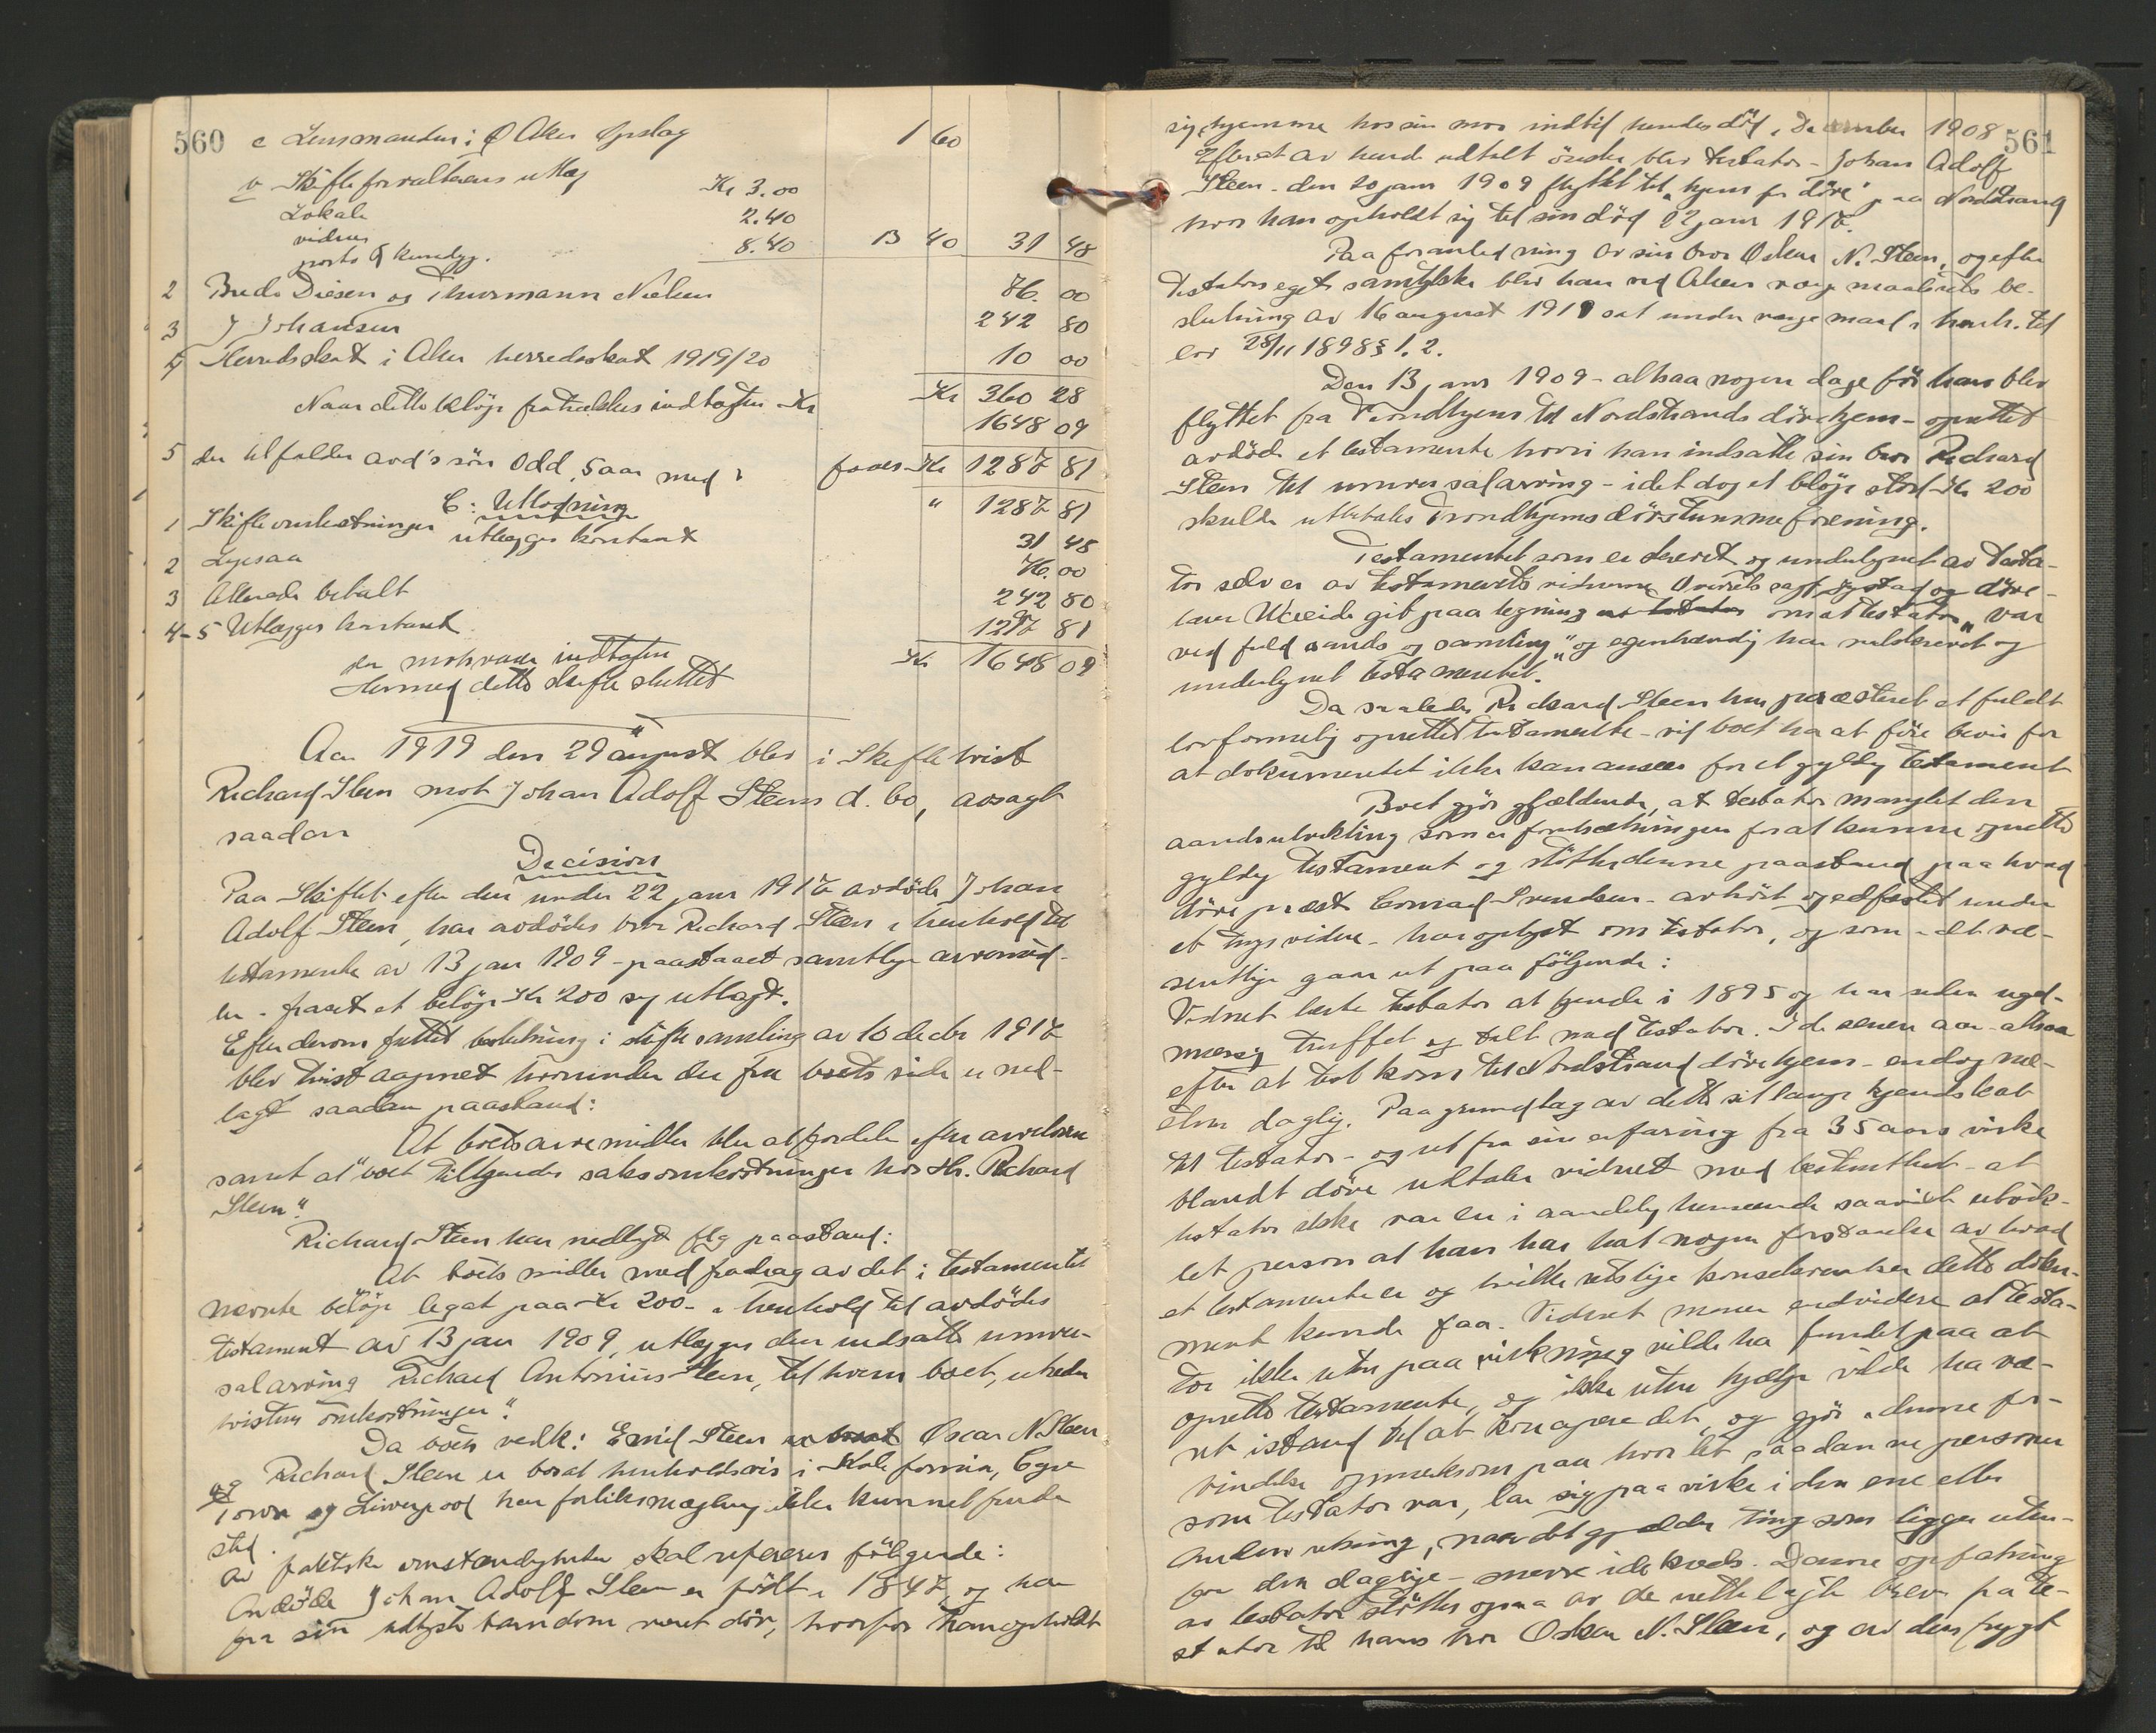 560
c Lensmanden i Ø Aker Opslag 1 60
v Skifteforvalterens utlæg Kr 3.00
Lokale 2.40
vidner
porto & kundgj. 8.40 13 40 31 48
2 Brede Diesen og Thurmann Nielsen 76. 00
3 J Johansen 242 80
4 Herredskat i Aker herredsskat 1919/20 10 00
Kr 360 28
Naar dette beløp fratrækkes indtægten Kr 1648 09
5 der tilfalder avd's søn Odd, 5 aar med Kr 1287 81
C: Utlodning " 1287 81
1 Skifteomkostninger utlægges kontant 31 48
2 Ligesaa 76. 00
3 Allerede betalt 242 80
4-5 Utlægges kontant 1297 81
der motsvarer indtægten Kr 1648 09
Hermed dette skifte sluttet
Aar 1919 den 29 august blev i Skiftetvist
Richard Steen mot Johan Adolf Steens d. bo, avsagt
saadan
Decision
Paa Skiftet efter den under 22 janr 1917 avdøde Johan
Adolf Steen, har avdødes bror Richard Steen i henhold til
testamente av 13 jan 1909 - paastaaet samtlige arvemid-
ler - fraset et beløp Kr 200 sig utlagt.
Efter derom fattet beslutning i skiftesamling av 10 decbr 1917
blev tvist aapnet hvorunder der fra boets side er ned-
lagt saadan paastand:
At boets arvemidler blir at fordele efter arveloven
samt at boet tilkjendes saksomkostninger hos Hr. Richard
Steen".
Richard Steen har nedlagt flg paastand:
At boets midler med fradrag av det i testamentet
nævnte beløp legat paa Kr 200- i henhold til avdødes
testament av 13 jan 1909, utlægges den indsatte univer-
salarving Richard Antonius Steen, til hvem boet, utreder
tvistens omkostninger".
Da boets vedk: Emil Steen Oscar N. Steen
og Richard Steen er bosat henholdsvis i Kalifornia, Cape
Town og Liverpool har forliksmægling ikke kunnet finde
sted.
Av faktiske omstændigheter skal refereres følgende:
Avdøde Johan Adolf Steen er født i 1847, og har
fra sin barndom været døv, hvorfor han opholdt
561
sig hjemme hos sin mor indtil hendes død i December 1908
Efter et av hende udtalt ønske blev testator - Johan Adolf
Steen - den 20 janr 1909 flyttet til "hjem for døve" paa Nordstrand
hvor han opholdt sig til sin død 22 janr 1917.
Paa foranledning av sin bror Oskar N. Steen, og efter
testators eget samtykke blev han ved Akers vergemaalsrets be-
slutning av 16 august 1911 sat under vergemaal i henh. til
lov 28/11 1898 § 1. 2.
Den 13 janr 1909 - altsaa nogen dage før han blev
flyttet fra Trondhjem til Nordstrands døvehjem - oprettet
avdøde et testamente hvori han indsatte sin bror Richard
Steen til universalarving - idet dog et beløp stort Kr 200
skulde utbetales Trondhjems døvstummeforening.
Testamentet som er skrevet og undertegnet av testa-
tor selv er av testamentsvidnerne Overretssagf. og døve-
lærer git paategning om at testator "var
ved fuld sands og samling" og egenhændig har nedskrevet og
undertegnet testamentet.
Da saaledes Richard Steen har præsteret et fuldt
lovformelig oprettet testamente - vil boet ha at føre bevis for
at dokumentet ikke kan ansees for et gyldig testament
Boet gjør gjældende, at testator manglet den
aandsutvikling som er forutsætningen for at kunne oprette
gyldig testament og støtter denne paastand paa hvad
døveprest Conrad Svendsen - avhørt og edfæstet under
et tingsvidne - har oplyst om testator, og som - det væ-
sentlige gaar ut paa følgende:
Vidnet lærte testator at kjende i 1895 og har siden regel-
mæssig truffet og talt med testator. I de senere aar - altsaa
efter at test kom til Nordstrand døvehjem - endog næ-
sten daglig. Paa grundlag av dette sit lange kjendskab
til testator - og ut fra sin erfaring fra 35 aars virke
blandt døve uttaler vidnet med bestemthet - at
testator ikke var en i aandelig henseende saavidt utvik-
let person at han har hat nogen forstaaelse av hvad
et testamente er og hvilke retslige konsekvenser dette doku-
ment kunde faa. Vidnet mener endvidere at testa-
tor ikke uten paavirkning vilde ha fundet paa at
oprette testamente, og ikke uten hjælp vilde ha væ-
ret istand til at koncipere det, og gjør i denne for-
bindelse opmerksom paa hvor let saadanne personer
som testator var, lar sig paavirke i den ene eller
anden retning, naar det gjælder ting som ligger uten-
for den daglige - snevre idekreds. Denne opfatning
av testator støttes ogsaa av de rettelagte brev fra te-
stator til hans bror Oskar N. Steen, og av den frygt